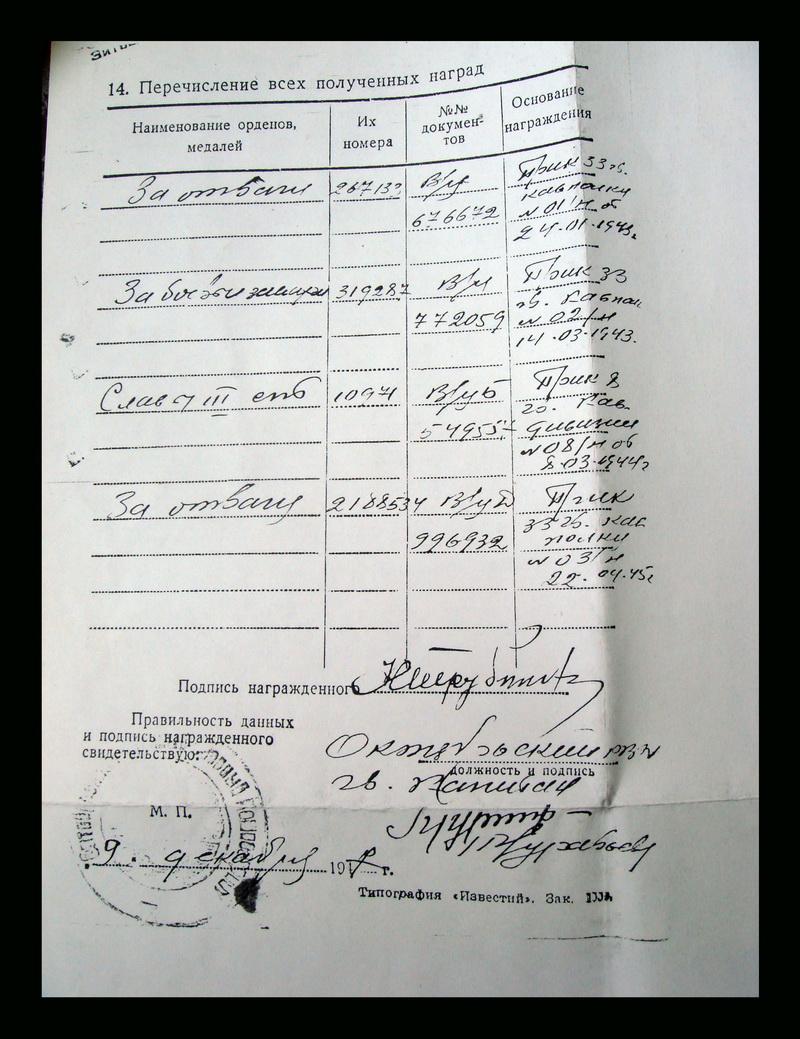 14. Перечисление всех полученных наград
Наименование орденов, медалей
Их номера
№№ докумен-тов
Основание награждения
За отвагу 267133 В/у Прик 33 гв.
676672 кавполку
№ 01/н от
24.01.1943г.
За боевые заслуги 319287 В/у Прик 33
772059 гв. Кавполк
№ 02/н
14.03.1943.
Слава III степ 10971 В/у Б Прик 8
гв. Кав
дивизии
№ 08/н от
8.03.1944г
За отвагу 2188534 В/у Прик
996932 33 гв. кав
полку
№ 03/н
22.04.45г
Подпись награжденного
Правильность данных
и подпись награжденного
свидетельствую:
Октябрьский РВК
должность и подпись
гв. Капитан
М. П.
9. декабря 194 г.
Типография «Известий». Зак.